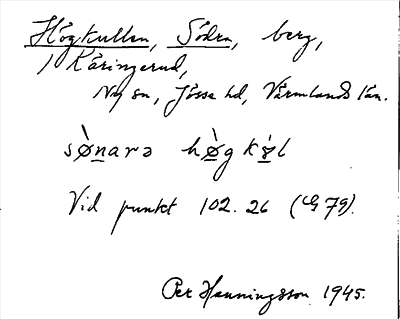 Högkullen, Södra, berg,
i Käringerud,
Ny sn, Jösse hd, Värmlands län.
sø̀narə hø̀gkɵ̀l
Vid punkt 102.26 (G 79).
Per Henningsson 1945.